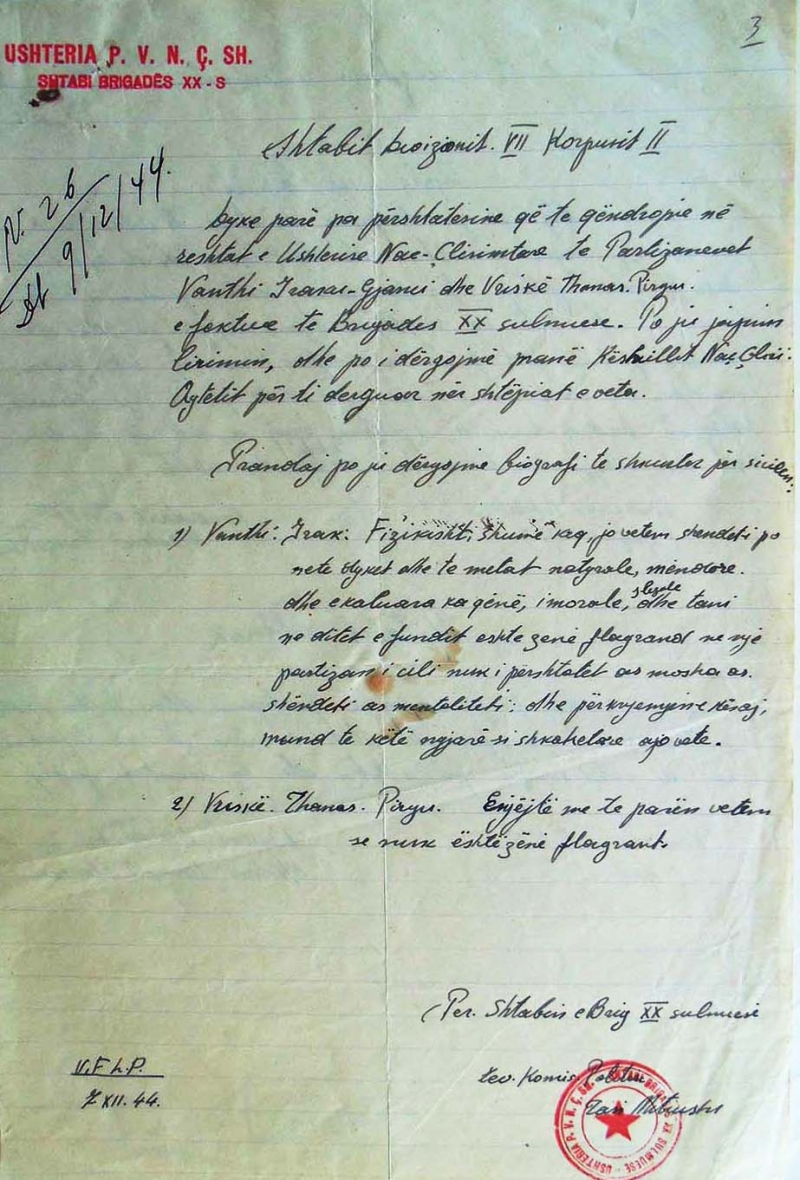 3
USHTERIA P. V. N. Ç. SH.
SHTABI BRIGADËS XX - S
N. 26
Dt 9/12/44.
Shtabit Divizionit. VII Korpusit II
Dyke parë pa përshtatësine që te qëndrojnë në
reshtat e Ushterisë Nac-Çlirimtare te Partizanevet
Vanthi Jraku-Gjanci dhe Vriskë Thanas. Pirgu.
e te Brigades XX sulmuese. Po ju japim
lirimin, dhe po i dërgojmë pranë Këshillit Naç.Çliri.
Qytetit për ti derguar nër shtëpiat e veta.
Prandaj po ju dërgojme biografi te shkurter për
1) Vanthi. Jrak: Fizikisht, shumë keq, jo vetem shendeti po
nete dyket dhe te metat natyrale, mëndore.
dhe e kaluara ka qënë, imorale, dhe tani
ne ditet e fundit eshte zenë flagrand ne një
partizan i cili nuk i përshtatet as mosha as.
shëndeti as mentaliteti; dhe për kësaj,
mund te ketë ngjarë si shkaketare ajo vete.
2) Vriskë. Thanas. Pirgu. Enjëjtë me te parën vetem
se nuk është zënë flagrant.
Per. Shtabin e Brig XX sulmuese
V.F L.P.
7 XII. 44.
zev. Komis. Politik
USHTERIA P. V. N. Ç. SH. SHTABI BRIGADËS XX SULMUESE